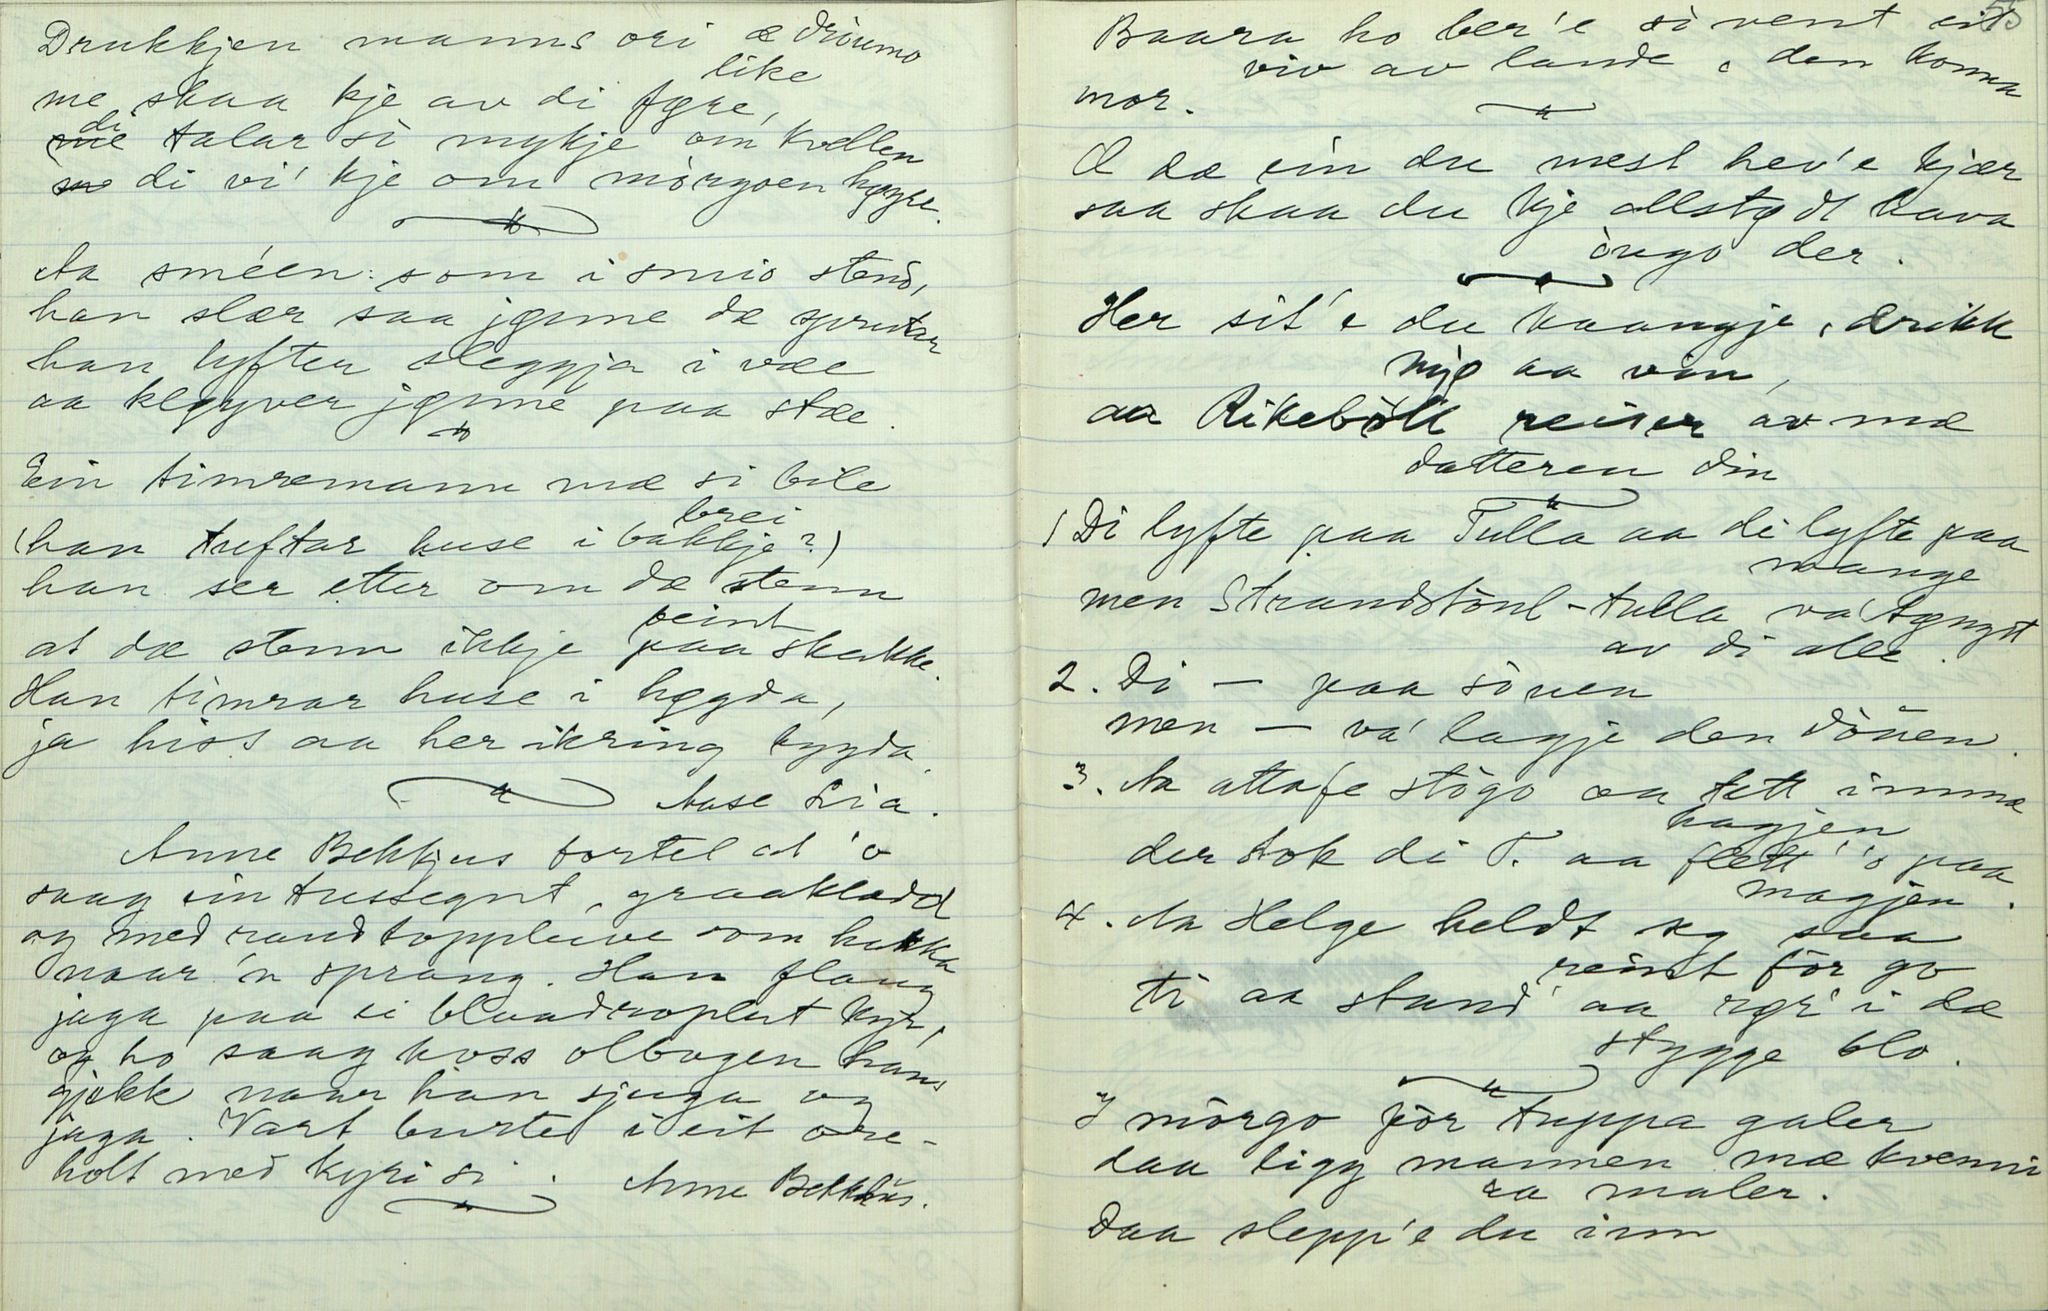 Drukkjen manns ori æ drøumo
like
me skaa kje av di føre,
di talar si mykje om kvellen
di vi' kje om morgoen høyre.
Aa sméen som i smio stend,
han slær saa jønne dæ sprutar
han lyfter sleggja i væe
aa kløyver jønne paa stæe.
Ein timremann mæ si bile
(han tuftar huse i brei bakkje?)
han ser etter om dæ stenn
at dæ stenn ikkje beint paa skakke.
Han timrar huse i høgda,
ja hiss aa her ikring bygda.
Aase Lia.
Anne Bekkjus fortel at 'o
saag ein tussegut, graakledd
og med randtoppluve som hekka
naar 'n sprang. Han flaug
jaga paa ei blaadroplut kyr,
og ho saag hoss olbogen hans
gjekk naar han sjuga og
jaga. Vart burte i eit ore-
holt med kyri si. Anne Bekkhus.
55
Baara ho ber'e si vent eit
viv av lande, den komma
mor.
Å dæ ein du mest hev'e kjær
saa skaa du kje allstødt hava
øugo der.
Her sit'e du kaangje, drikk
mjø aa vin,
aa Rikeboll reiser av mæ
datteren din
1 Di lyfte paa Tulla aa di lyfte paa
mange
men Strandstøul-tulla va tøngst
av di alle.
2. Di — paa søuen
men — va' lagje den døuen.
3. Aa attafe støgo aa tett innmæ
hagjen
der tok di T. aa flett 'o paa
magjen.
4. Aa Helge heldt seg saa
reint for go
ti aa stand' aa rør' i dæ
stygge blo.
I morgo for tuppa galer
daa ligg mannen mæ kvenni
aa maler.
Daa slepp'e du inn